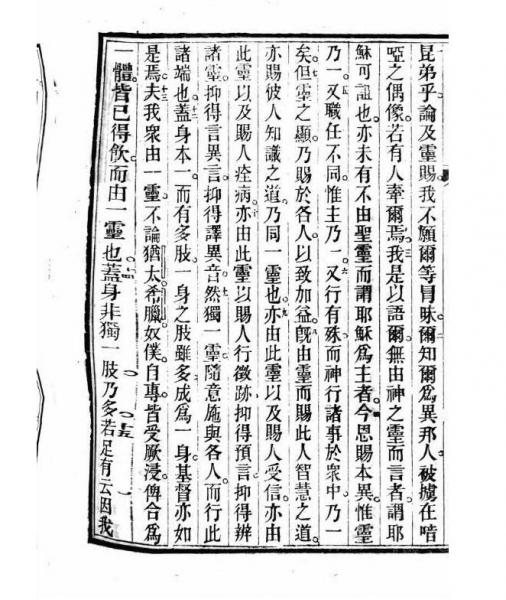 昆弟乎論及靈賜我不願爾等冒昧。爾知爾為異邦人被擄在喑
啞之偶像。若有人牽爾焉。我是以語爾。無由神之靈而言者。謂耶
穌可詛也。亦未有不由聖靈而謂耶穌為主者。今恩賜本異。惟靈
乃一。又職任不同。惟主乃一。又行有殊。而神行諸事於眾中。乃一
矣。但靈之顯。乃賜於各人。以致加益。既由靈而賜此人智慧之道。
亦賜彼人知識之道。乃同一靈也。亦由此靈以及賜人受信。亦由
此靈以及賜人痊病。亦由此靈以賜人行徵跡。抑得預言。抑得辨
諸靈。抑得言異言。抑得譯異音。然獨一靈隨意施與各人。而行此
諸端也。蓋身本一。而有多肢。一身之肢雖多。成為一身。基督亦如
是焉。夫我眾由一靈。不論猶太希臘奴僕自專。皆受厥浸。俾合為
一體。皆已得飲而由一靈也。蓋身非獨一肢乃多。若足有云因我